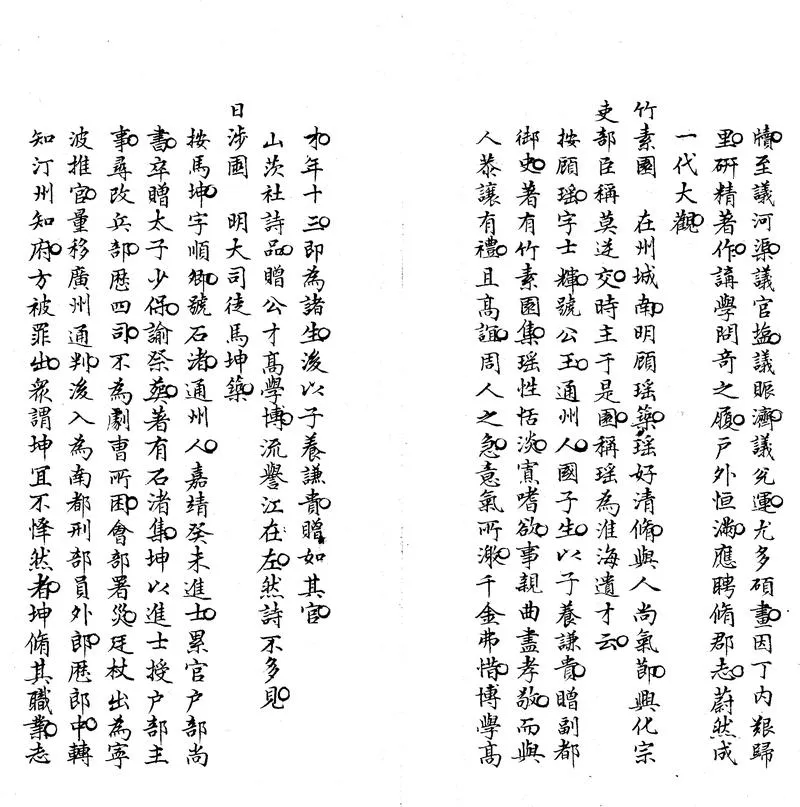 牘至議河渠議官塩議賑濟議兊運尤多碩畫因丁内艱歸
里研精著作講學問奇之履户外恒滿應聘脩郡志蔚然成
一代大觀
竹素園　在州城南明顧瑶築瑶好清脩與人尚氣節興化宗
吏部臣稱莫逆交時主于是園稱瑶為淮海遺才云
按顧瑶字士輝號公玉通州人國子生以子養謙貴贈副都
御史著有竹素園集瑶性恬淡寡嗜欲事親曲盡孝敬而與
人恭讓有禮且高誼周人之急意氣所激千金弗惜博學高
才年十三即為諸生後以子養謙貴贈如其官
山茨社詩品贈公才高學博流譽江在左然詩不多見
日涉園　明大司徒馬坤築
按馬坤字順卿號石渚通州人嘉靖癸未進士累官户部尚
書卒贈太子少保諭祭葬著有石渚集坤以進士授户部主
事尋改兵部歷四司不為劇曹所困會部署災廷杖出為寧
波推官量移廣州通判後入為南都刑部員外郎歷郎中轉
知汀州知府方被罪出衆謂坤宜不懌然者坤脩其職業志